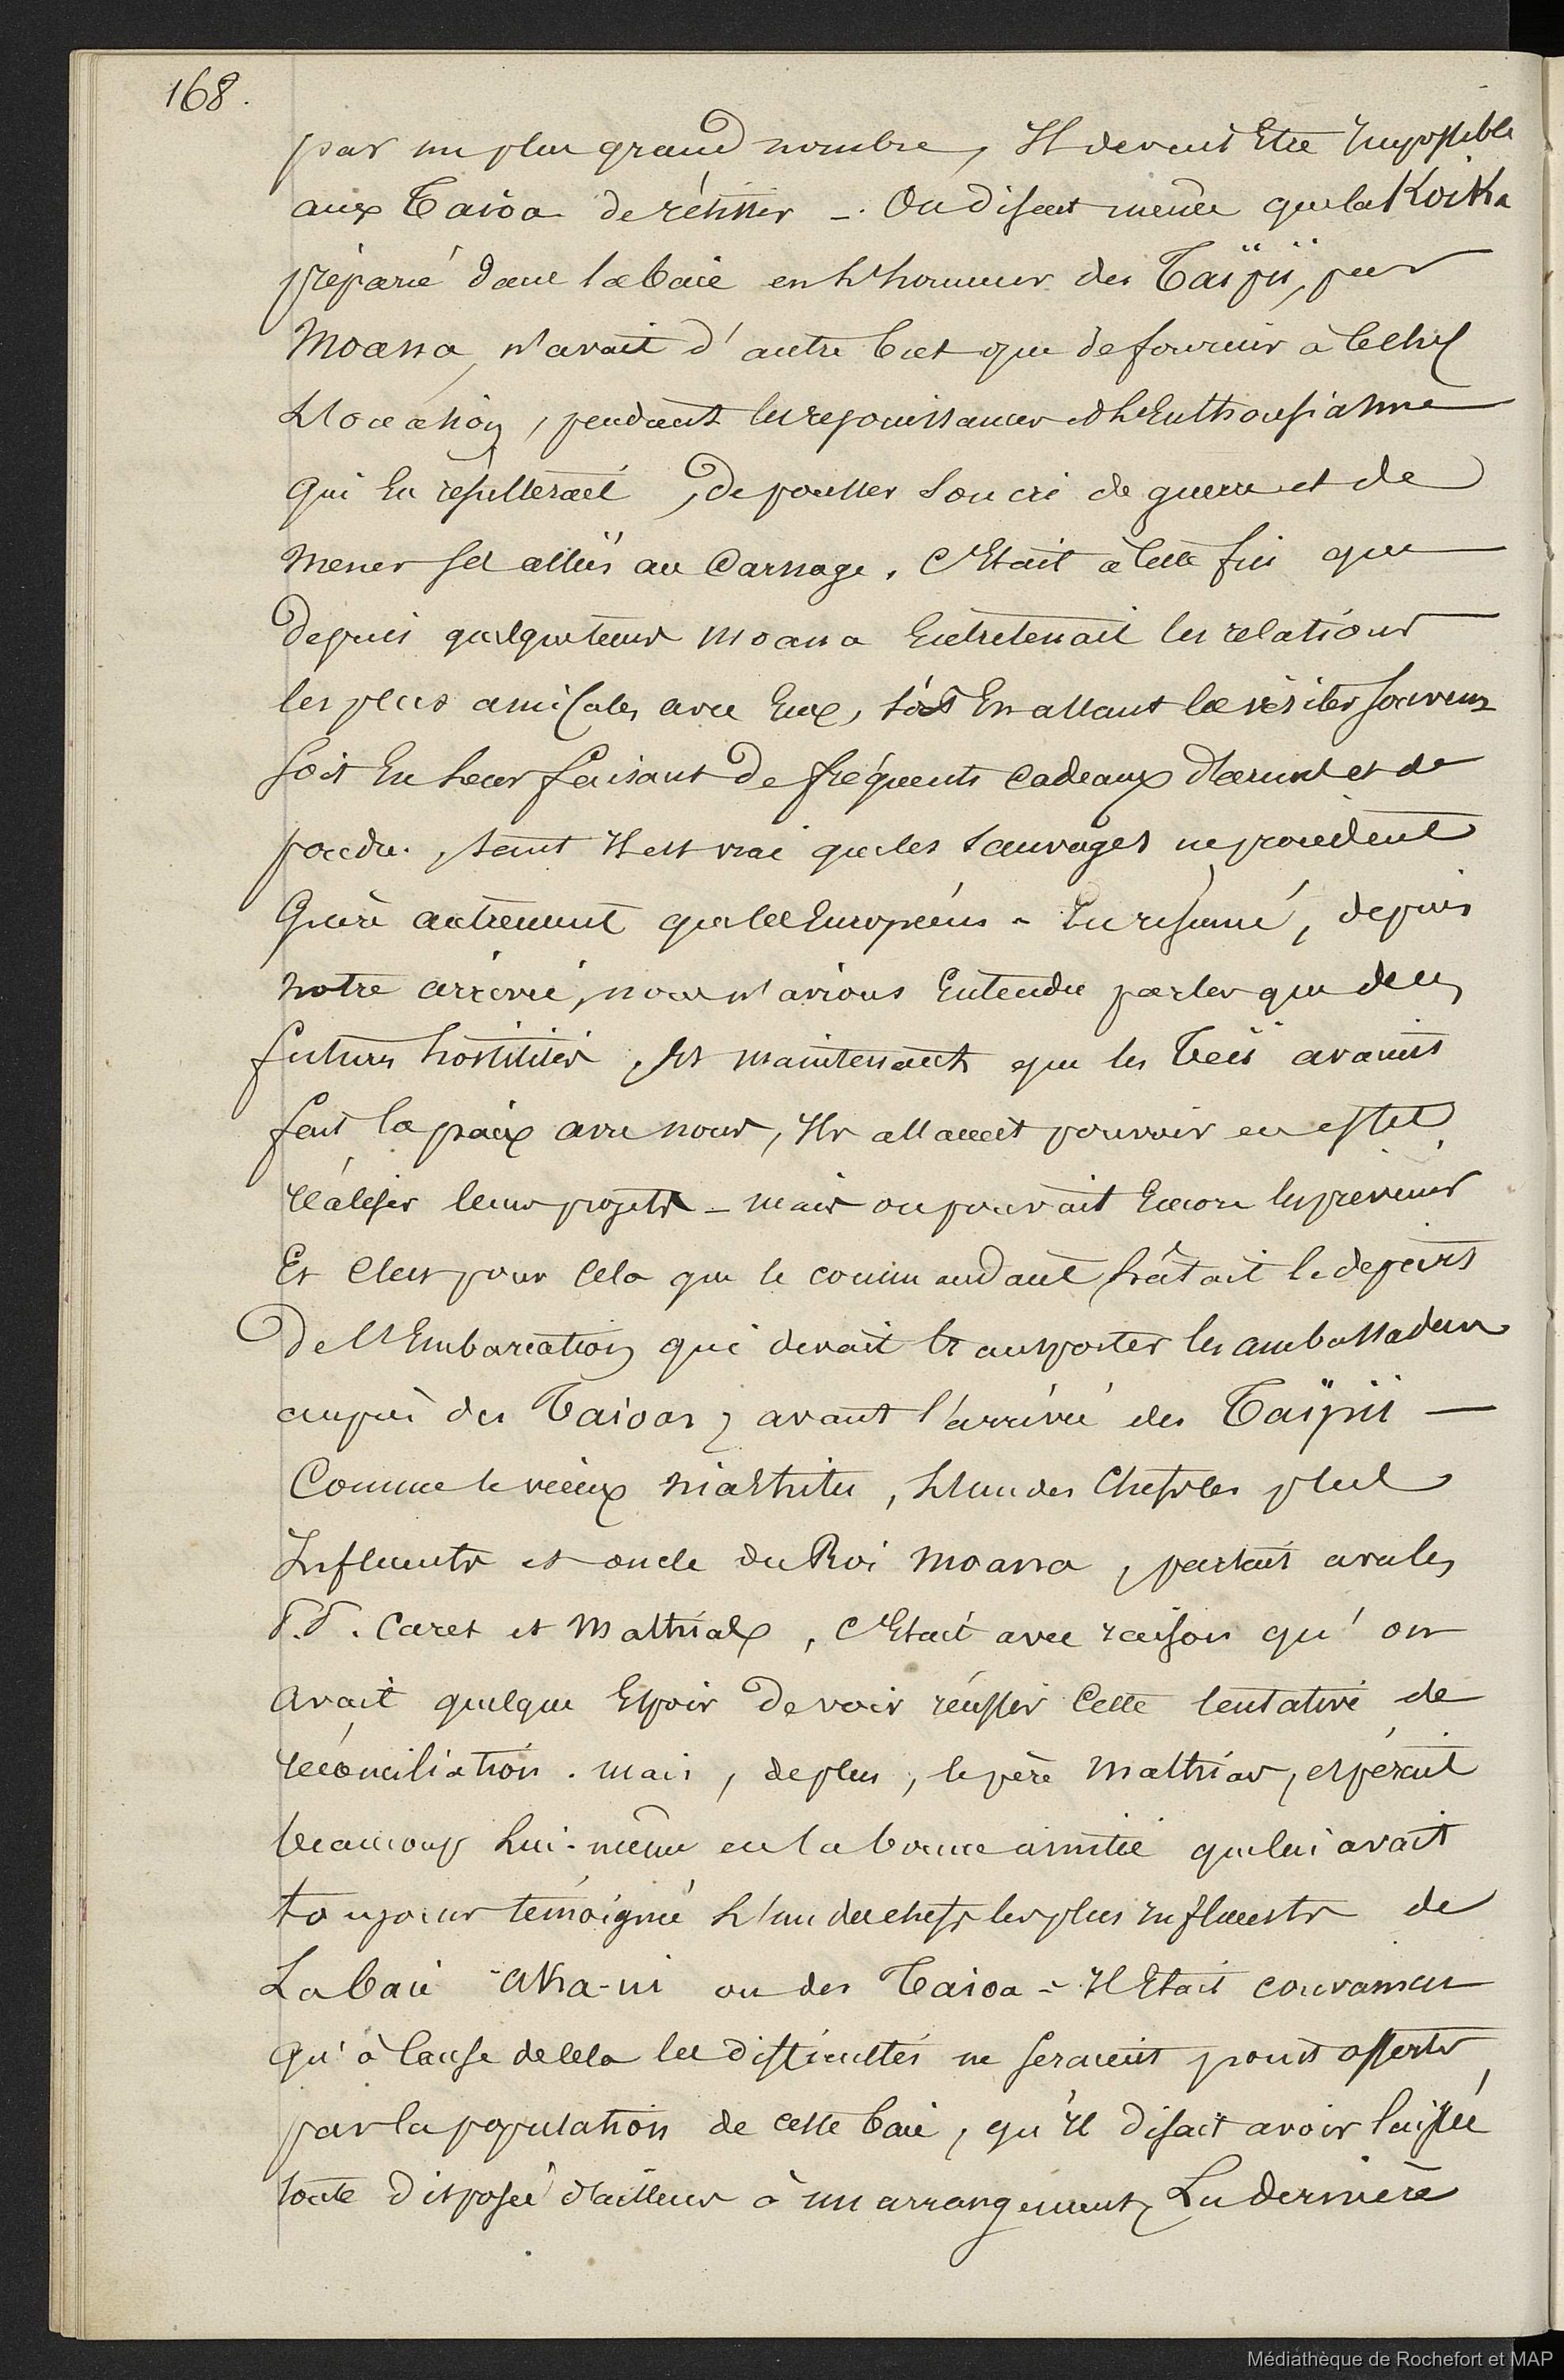 168.
par un plus grand nombre, Il devenait Etre Impossible
aux Taioa de résister -. On disait même que la Koika
préparé dans la baie en l'honneur des Taïpiï, par
Moana, n'avait d'autre but que de fournir à le chef
l'locasion, pendant les rejouissances et l'Enthousiasme
qui En résulterait, de pousser son cri de guerre et de
mener ses alliés au Carnage. C'Etait à cette fin que
depuis quelque temps Moana Entretenait les relations
les plus amicales avec Eux, soit En allant le visiter souvent
soit En leur faisant de fréquents cadeaux d'armes et de
poudre., tant Il est vrai que les sauvages ne procèdent
Guère autrement que les Européens - En résumé, depuis
notre arrivée, nous n'avions Entendu parler que de ces
futures hostilités, Et maintenant que les Teiï avaient
fait la paix avec nous, Ils allaient pouvoir en effet
réaliser leurs projets - mais on pouvait Encore les prévenir
Et C'est pour cela que le commandant hâtait le départ
de l'Embarcation qui devait transporter les ambassadeurs
auprès des Taioas, avant l'arrivée des Taïpiï —
Comme le vieux Niahitu, l'un des Chefs les plus
Influents et oncle du Roi Moana, partait avec les
P.P. Caret et Mathias, C'Etait avec raison qu'on
avait quelque Espoir de voir réussir Cette tentative de
réconciliation. mais, de plus, le père Mathias, espérait
beaucoup lui-même en la bonne amitié que lui avait
toujours témoigné l'un des chefs les plus influents de
La baie Aka-ni ou des Taioa - Il Etait convaincu
qu'à Cause de cela les difficultés ne seraient point offerts
par la population de cette baie, qu'Il disait avoir laissée
toute disposée d'ailleurs à un arrangement, La dernière
Médiathèque de Rochefort et MAP